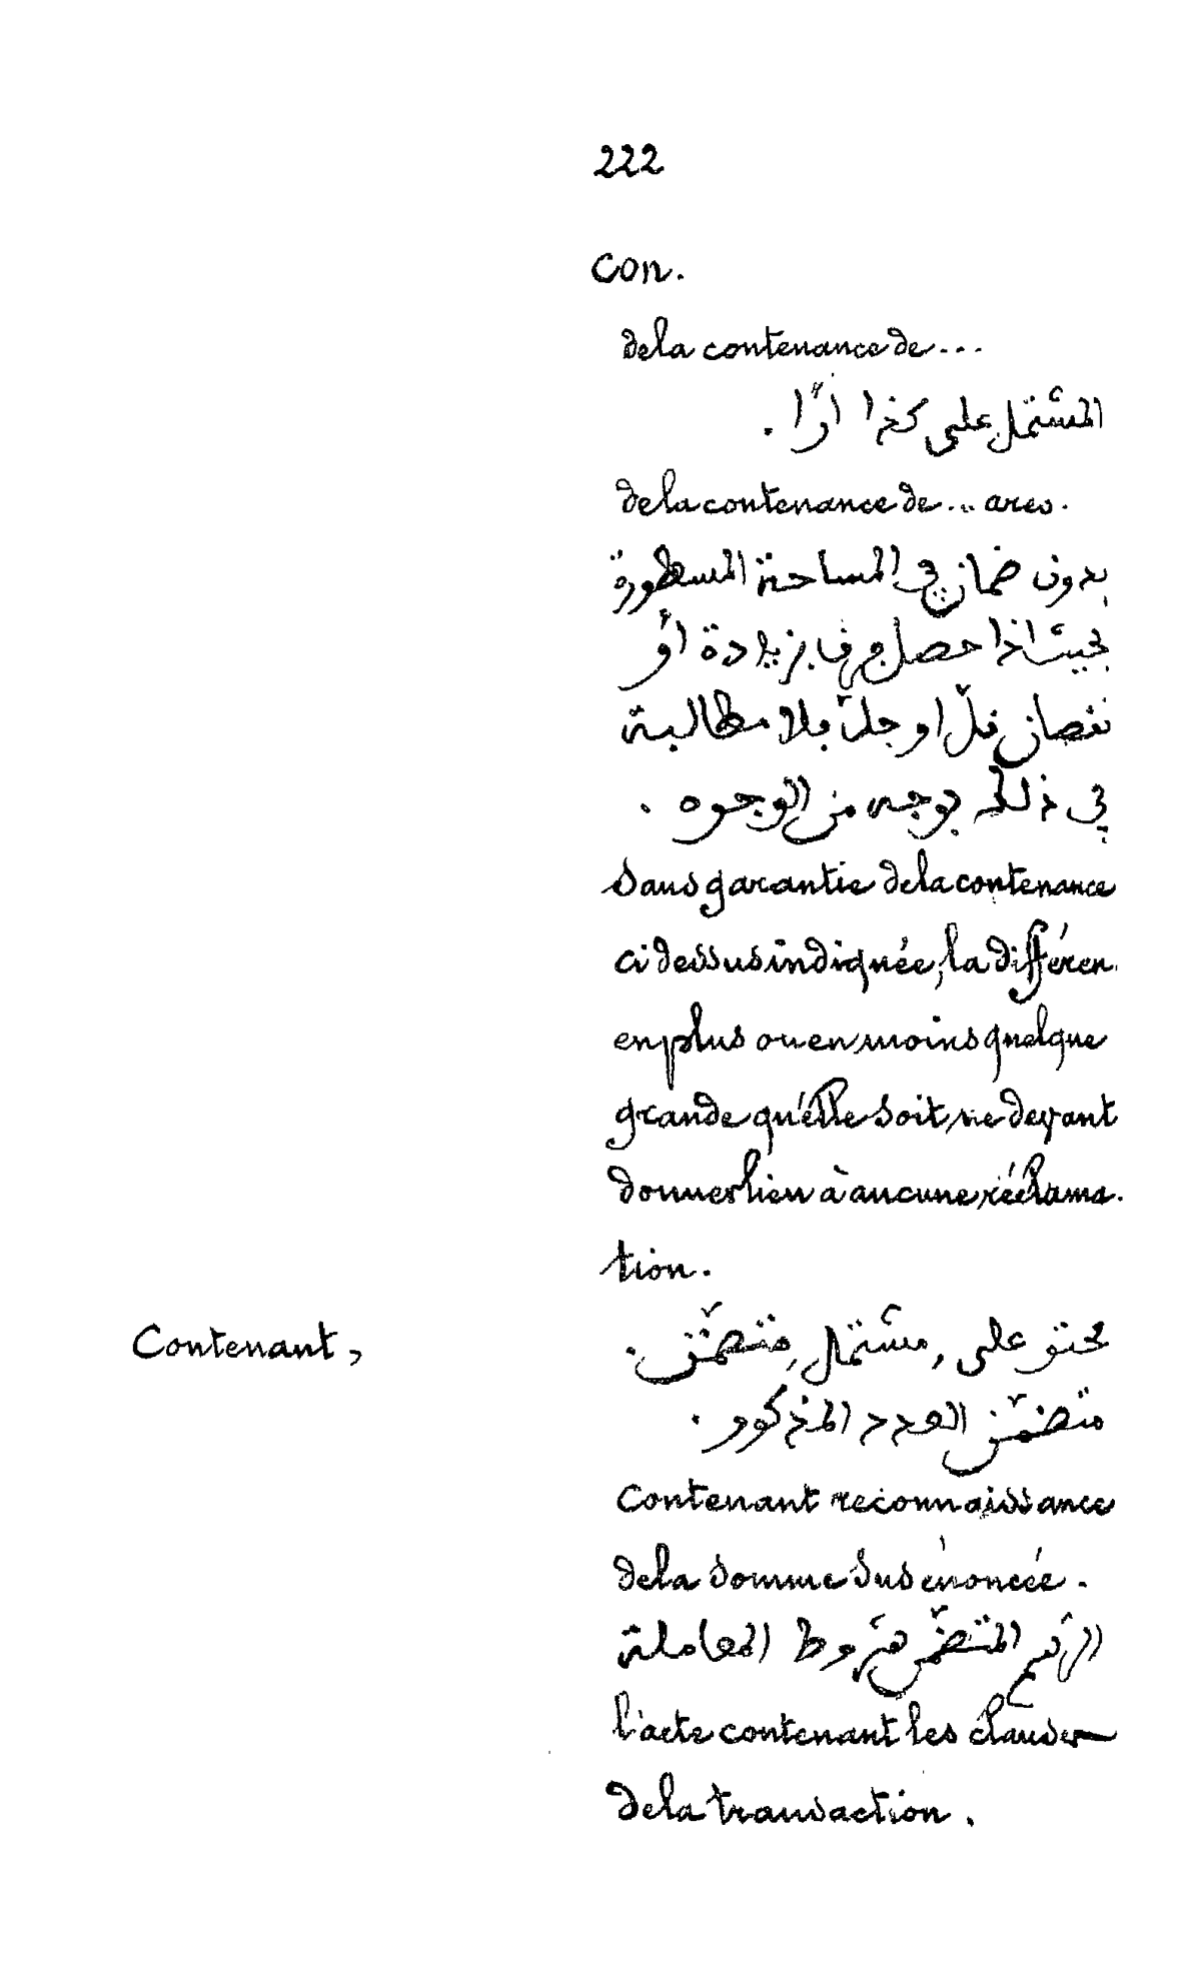 222
con.
de la contenance de ...
المشتمل على كذا ارًا .
de la contenance de ... ares.
بدون ضمان في المساحة المسطورة
بحيث اذا حصل فيها زيادة أو
نقصان قلّ او جلّ بلا مطالبة
في ذلك بوجه من الوجوه .
Sans garantie de la contenance
ci dessus indiquée, la différen
en plus ou en moins quelque
grande qu'elle soit, ne devant
donner lieu à aucune réclama.
tion.
Contenant,
محتو على , مشتمل , متضمّن .
متضمّن العدد المذكور .
Contenant reconnaissance
de la somme sus énoncée .
الرسم المتضمّن شروط المعاملة
l'acte contenant les clauses
de la transaction .